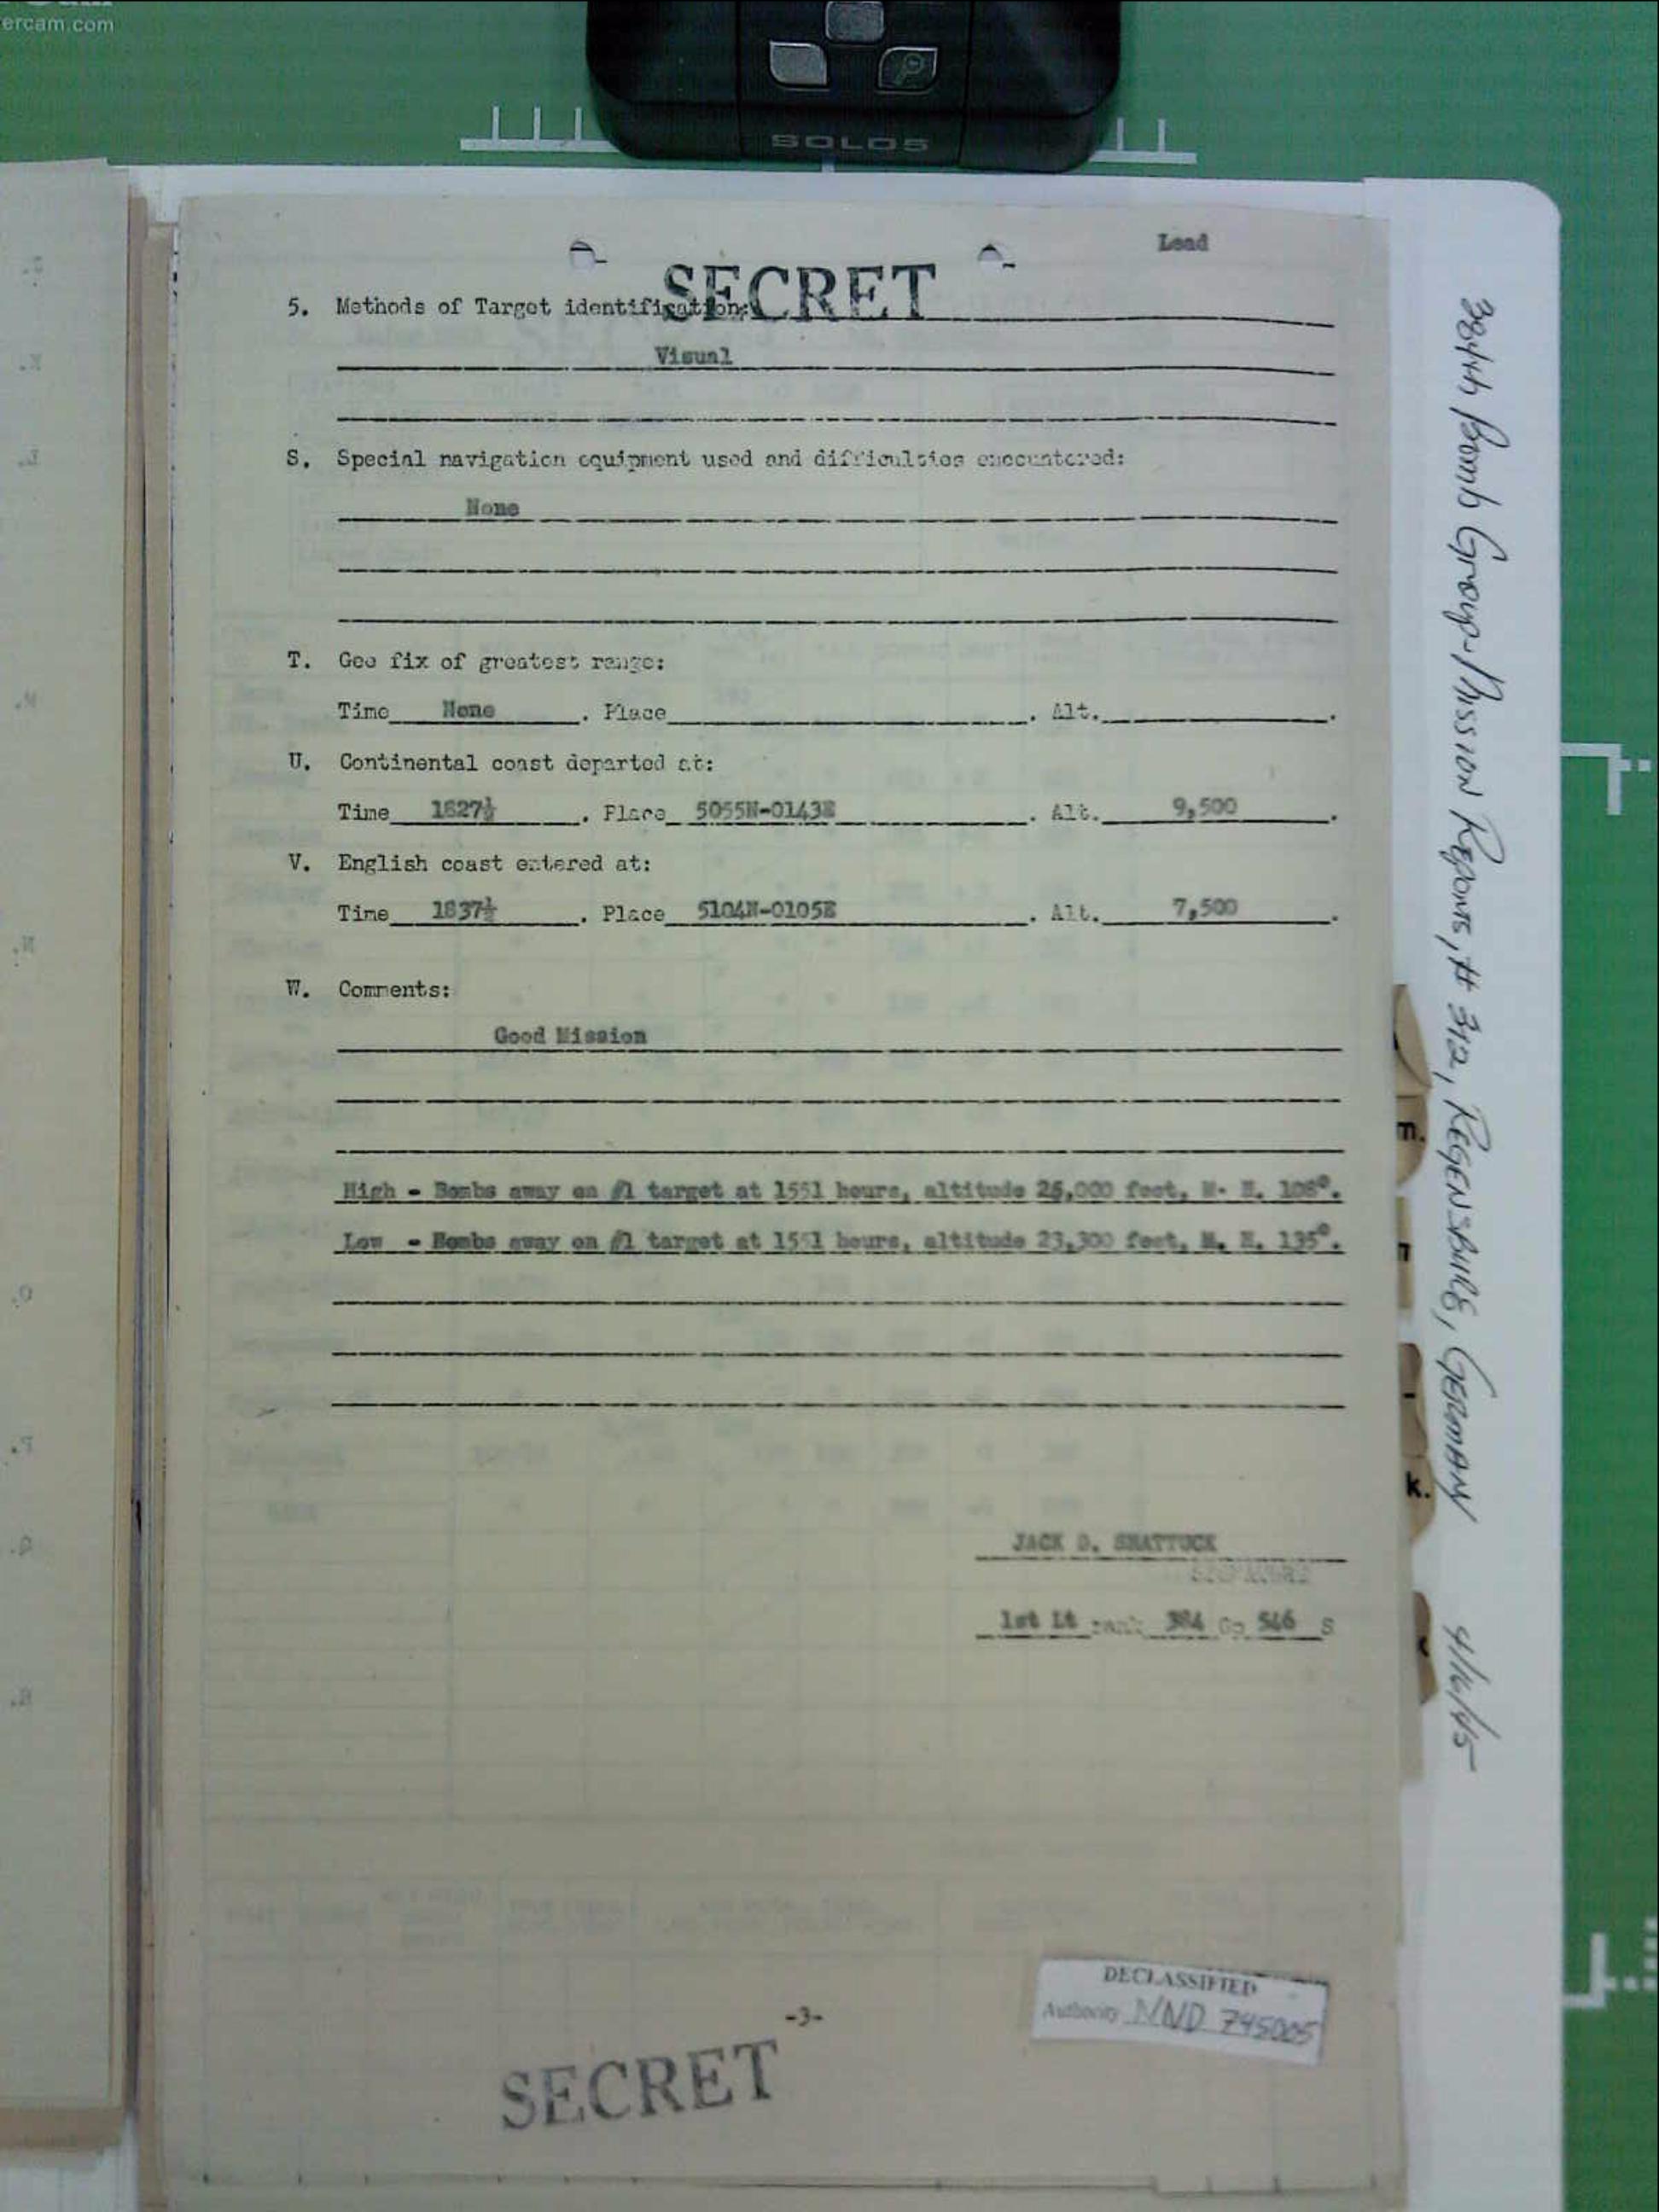 ercam.com
SOLO5
Lead
SECRET
5. Methods of Target identification:
Visual
S. Special navigation equipment used and difficulties encountered:
None
T. Gee fix of greatest range:
Time None . Place . Alt. .
U. Continental coast departed at:
Time 1827½ . Place 5055N-0143E . Alt. 9,500 .
V. English coast entered at:
Time 1837½ . Place 5104N-0105E . Alt. 7,500 .
W. Comments:
Good Mission
High - Bombs away on #1 target at 1551 hours, altitude 25,000 feet, M. H. 108°.
Low - Bombs away on #1 target at 1551 hours, altitude 23,300 feet, M. H. 135°.
JACK D. SHATTUCK
1st Lt rank 384 Gp 546 S
-3-
SECRET
DECLASSIFIED
Authority NND 745005
384th Bomb Group-Mission Reports, # 312, REGENSBURG, GERMANY 4/16/45
m.
k.